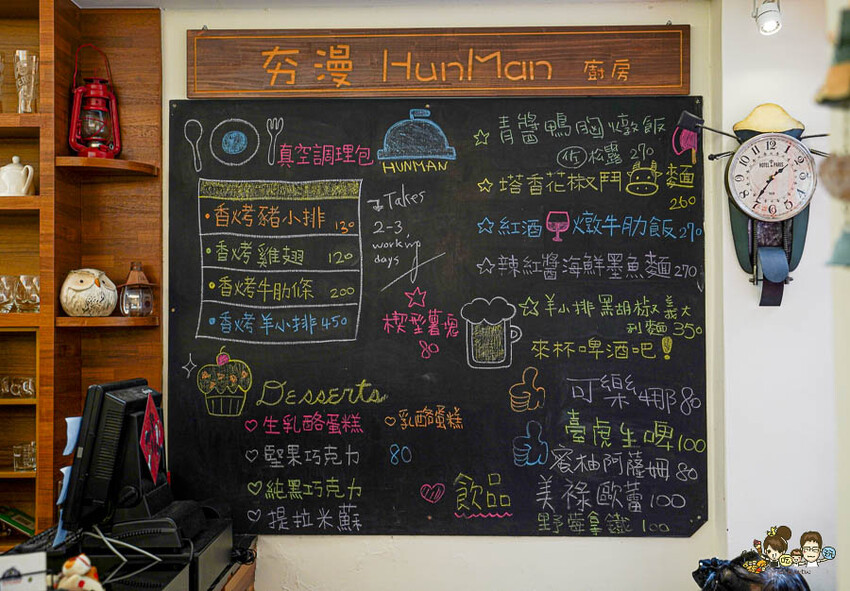 夯漫 HunMan 廚房
真空調理包
HUNMAN
香烤豬小排 130
香烤雞翅 120
香烤牛肋條 200
香烤羊小排 450
Takes
2-3
working
days
楔型薯塊
80
青醬鴨胸燉飯
佐松露 270
塔香花椒鬥麵
260
紅酒燉牛肋飯 270
辣紅醬海鮮墨魚麵 270
羊小排黑胡椒義大
利麵 350
來杯啤酒吧!
Desserts
生乳酪蛋糕
乳酪蛋糕
堅果巧克力 80
純黑巧克力
提拉米蘇
飲品
可樂 80
臺虎生啤 100
蜜柚阿薩姆 80
美祿歐蕾 100
野莓拿鐵 100
HOTEL PARIS